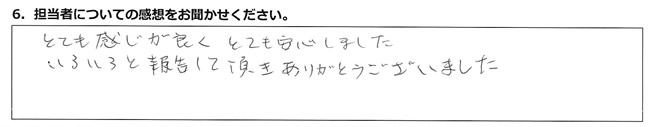 6. 担当者についての感想をお聞かせください。
とても感じが良く とても安心しました
いろいろと報告して頂きありがとうございました